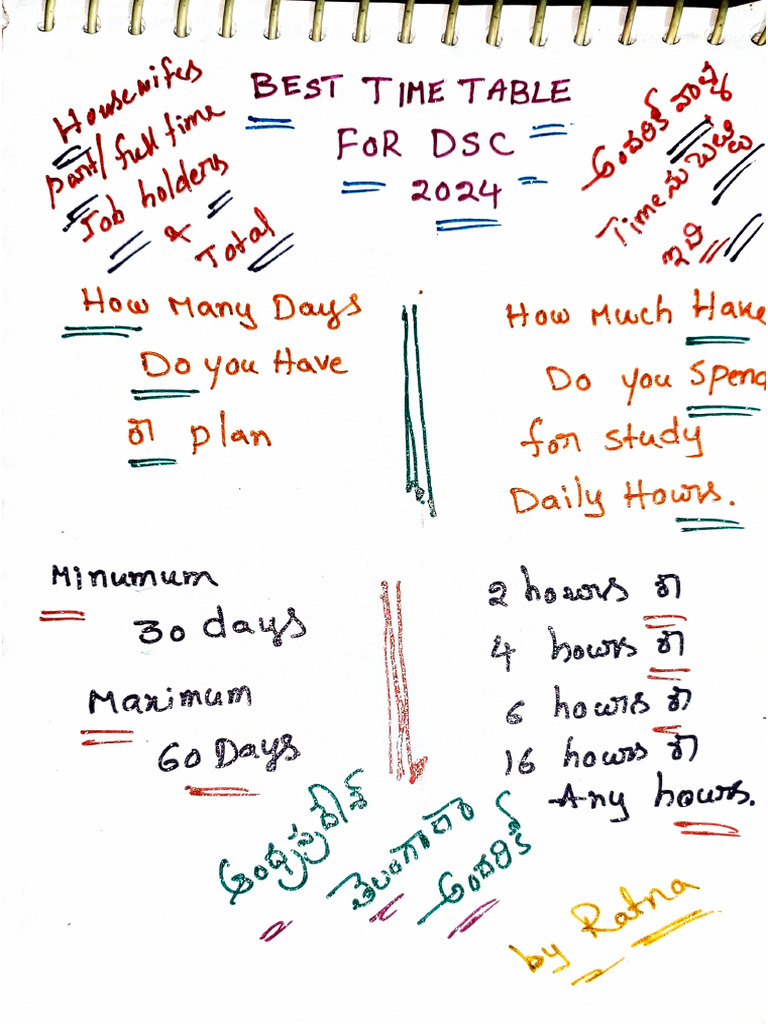 Housewifes
part/full time
Job holders
&
Total
BEST TIME TABLE
FOR DSC
2024
అందరికీ వాళ్ళ
Timeను బట్టి
ఇది
How Many Days
Do you Have
or plan
How Much Have
Do you Spend
for study
Daily Hours.
Minumum
30 days
Maximum
60 Days
2 hours or
4 hours or
6 hours or
16 hours or
Any hours.
ఆంధ్రప్రదేశ్
తెలంగాణా
అందరికీ
by Ratna